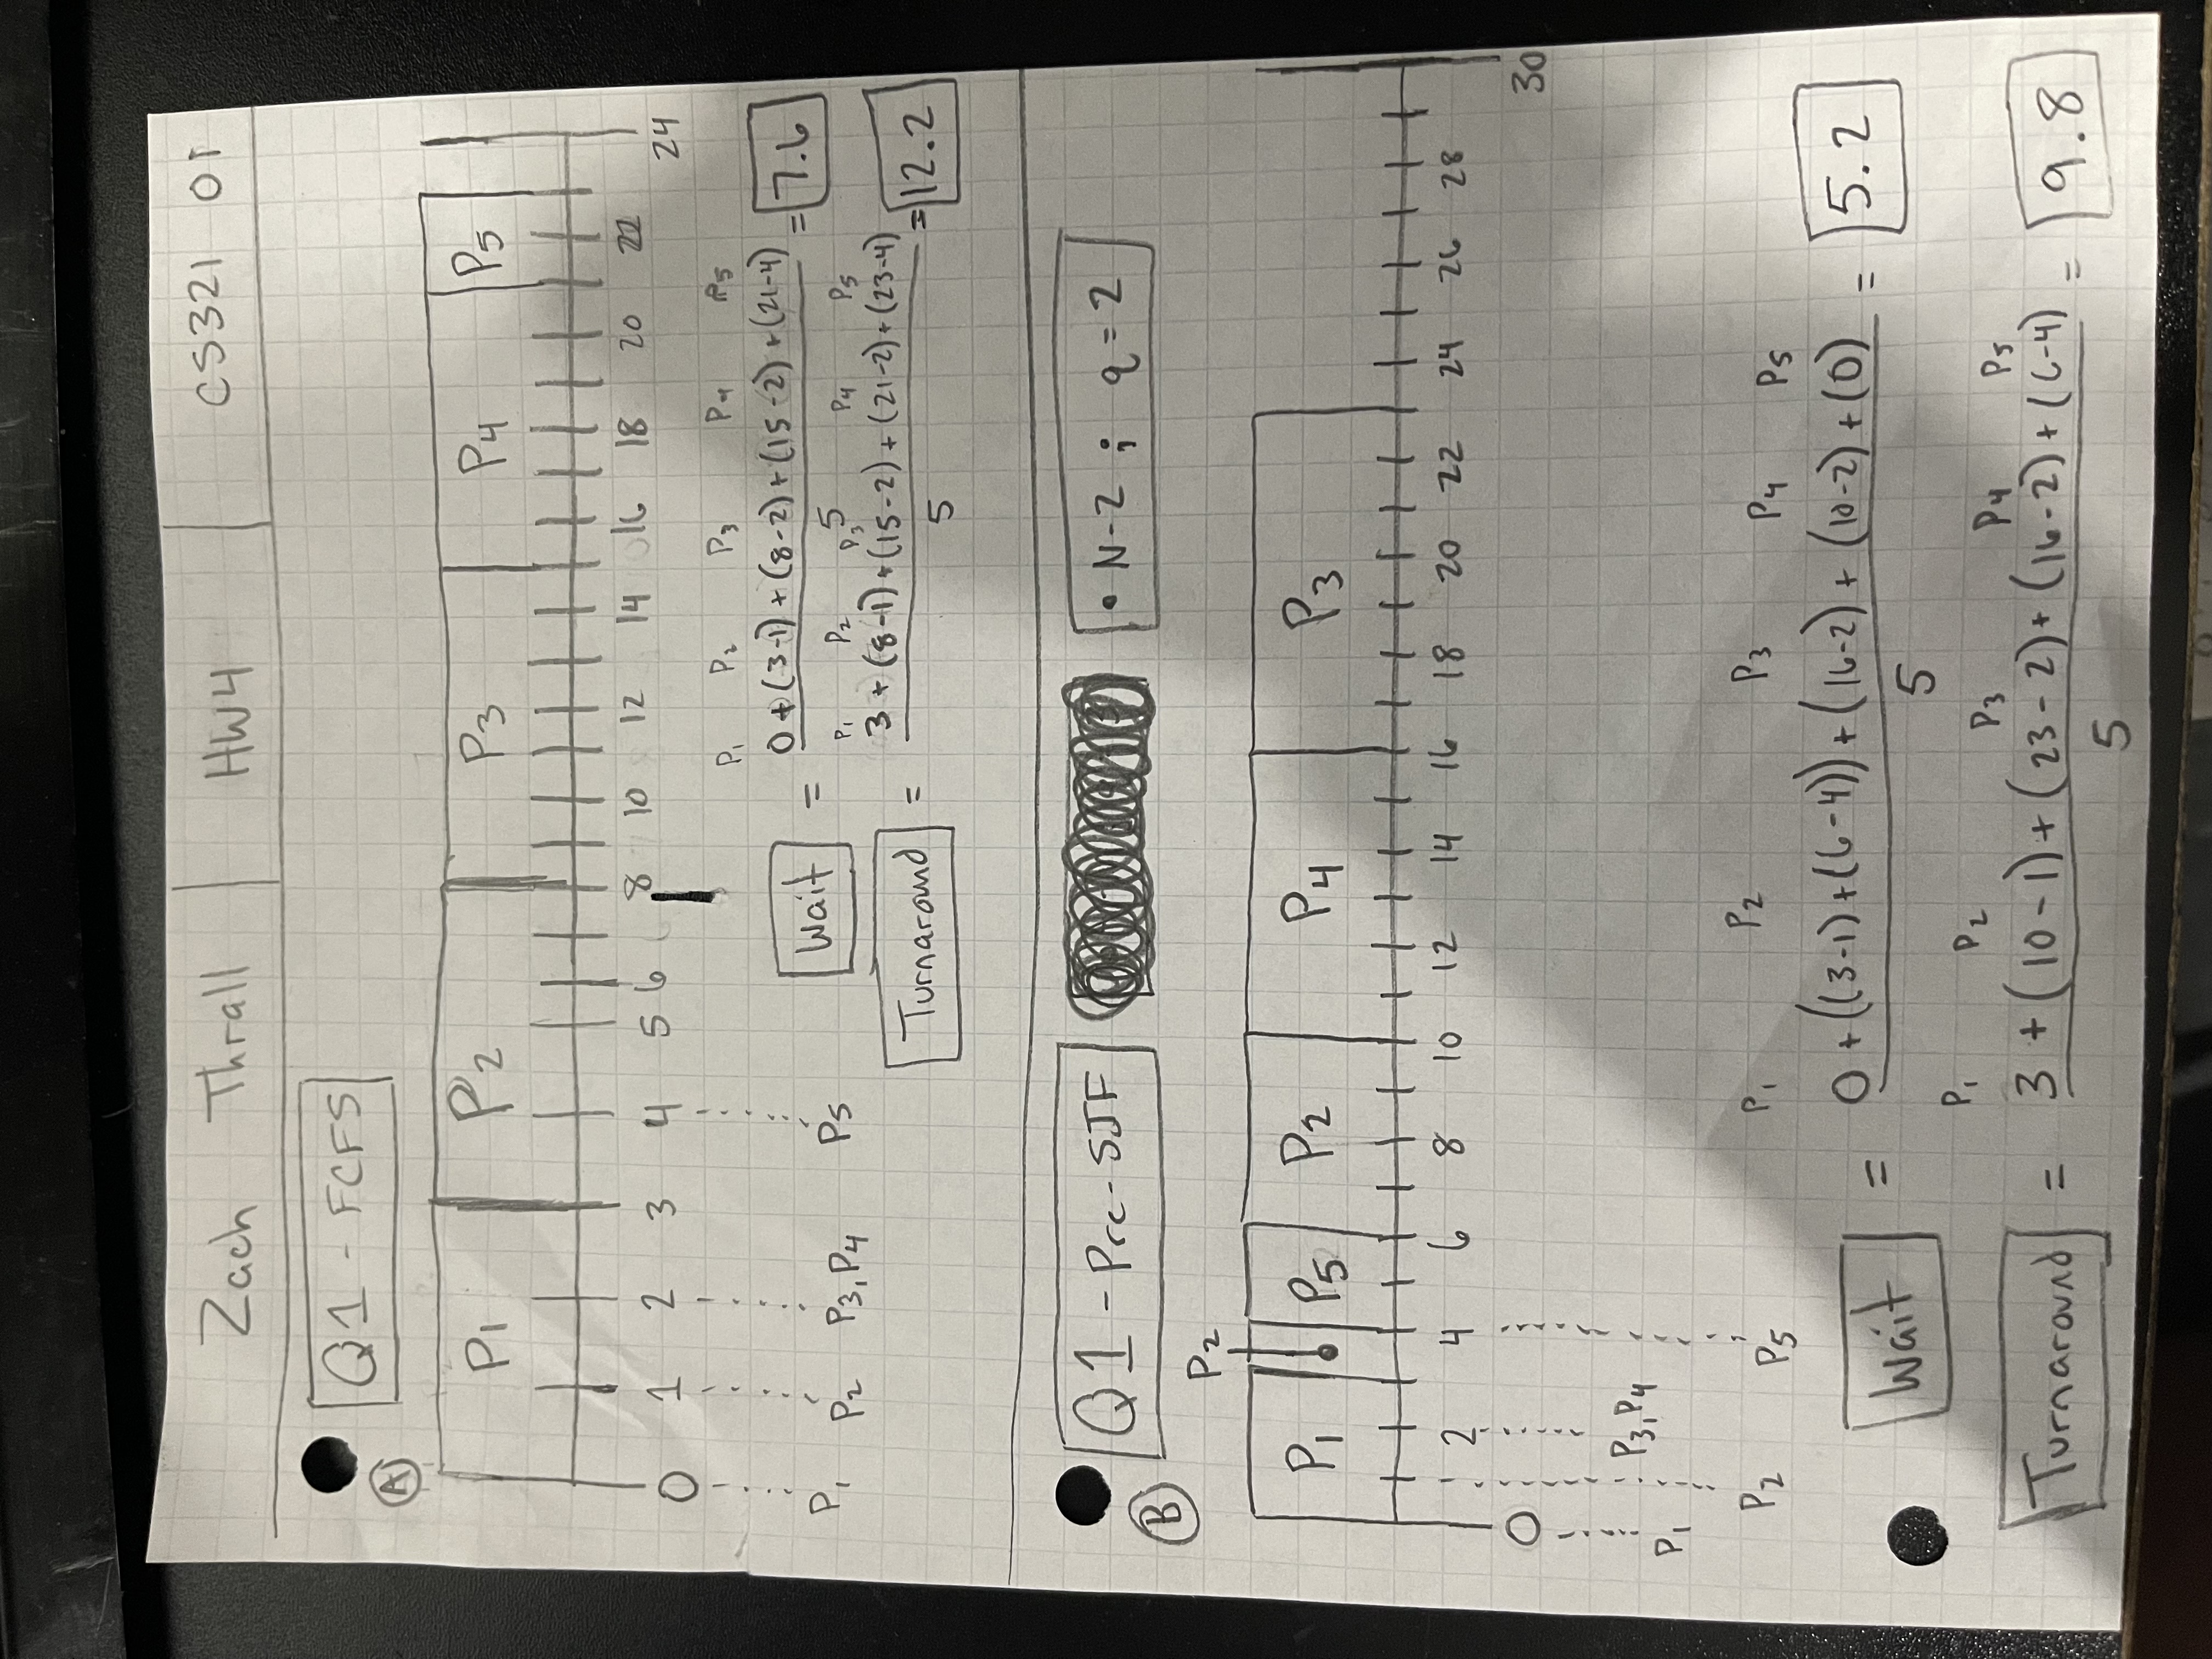 Zach Thrall | HW4 | CS321 01
Q1 - FCFS
A
P1 P2 P3 P4 P5
0 1 2 3 4 5 6 8 10 12 14 16 18 20 22 24
P1 P2 P3,P4 P5
P1 P2 P3 P4 P5
Wait = 0 + (3-1) + (8-2) + (15-2) + (21-4) / 5 = 7.6
P1 P2 P3 P4 P5
Turnaround = 3 + (8-1) + (15-2) + (21-2) + (23-4) / 5 = 12.2
Q1 - Pre-SJF • N-2 ; q=2
B
P2
P1 P5 P2 P4 P3
0 1 2 4 6 8 10 12 14 16 18 20 22 24 26 28 30
P1 P2 P3,P4 P5
P1 P2 P3 P4 P5
Wait = 0 + ((3-1) + (6-4)) + (16-2) + (10-2) + (0) / 5 = 5.2
P1 P2 P3 P4 P5
Turnaround = 3 + (10-1) + (23-2) + (16-2) + (6-4) / 5 = 9.8